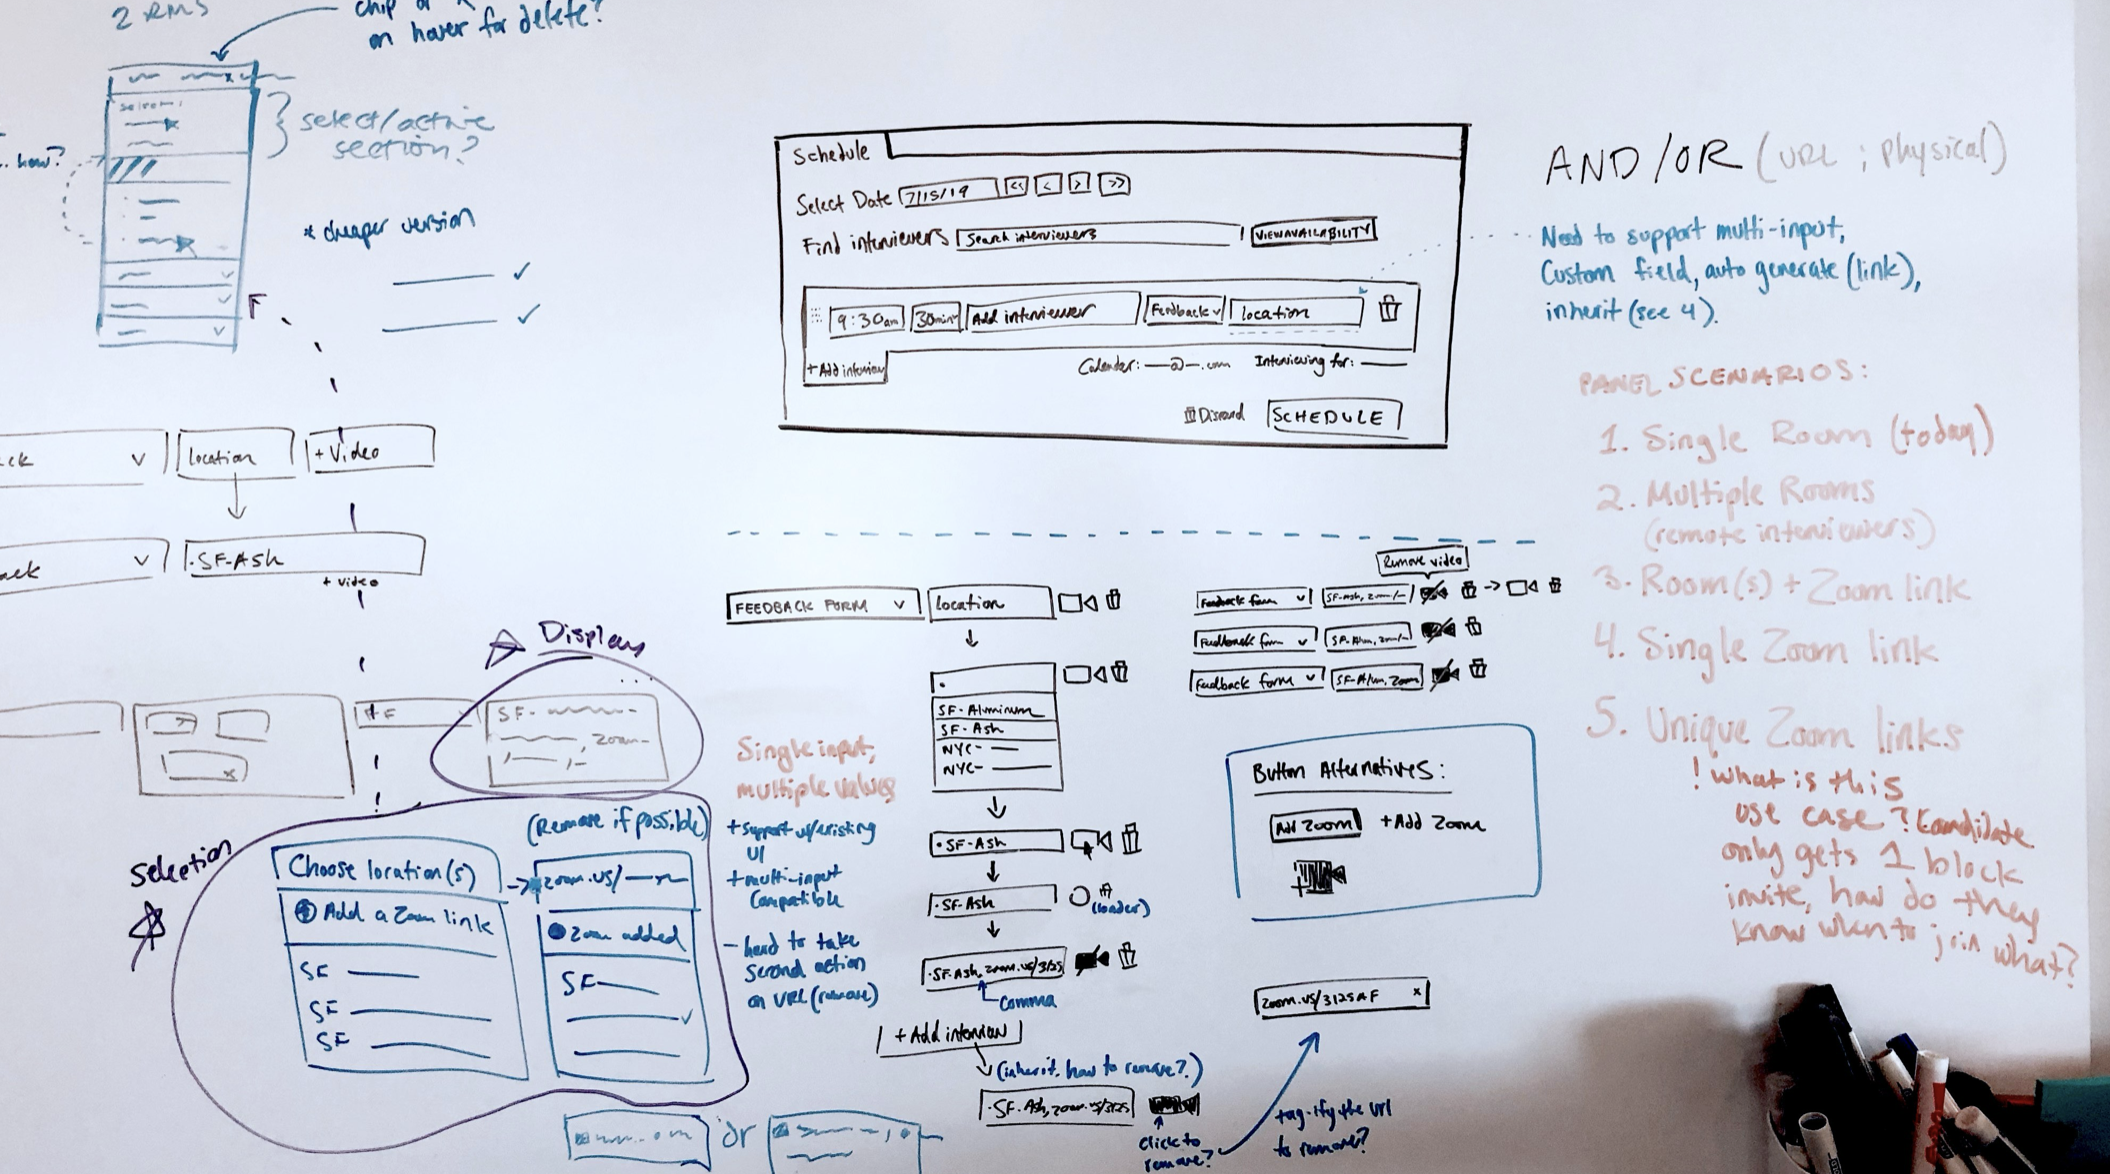 2 RMS
chip or x
on hover for delete?
select/active
section?
how?
* cheaper version
location
+ Video
SF-Ash
+ video
Displays
SF-
zoom-
Selection
(Remove if possible)
Choose location(s)
Add a Zoom link
SF
SF
SF
zoom.us/
Zoom added
SF
or
Schedule
Select Date 7/15/19 << < > >>
Find interviewers Search interviewers VIEW AVAILABILITY
9:30am 30min Add interviewer Feedback location
+Add interview
Calendar: —@—.com Interviewing for:
Discard SCHEDULE
FEEDBACK FORM location
SF-Aluminum
SF-Ash
NYC-
NYC-
Single input,
multiple values
+ support w/existing
UI
+ multi-input
compatible
- hard to take
second action
on URL (remove)
SF-Ash
SF-Ash
(loader)
SF-Ash, zoom.us/3125
comma
+ Add interview
(inherit, how to remove?)
SF-Ash, zoom.us/3125
click to
remove?
tag-ify the url
to remove?
zoom.us/3125AF x
Remove video
Feedback form SF-Ash, zoom/-
Feedback form SF-Alum, zoom/-
Feedback form SF-Alum, zoom
Button Alternatives:
Add Zoom +Add Zoom
+
AND/OR (URL ; physical)
Need to support multi-input,
Custom field, auto generate (link),
inherit (see 4).
PANEL SCENARIOS:
1. Single Room (today)
2. Multiple Rooms
(remote interviewers)
3. Room(s) + Zoom link
4. Single Zoom link
5. Unique Zoom links
! What is this
use case? Candidate
only gets 1 block
invite, how do they
know when to join what?